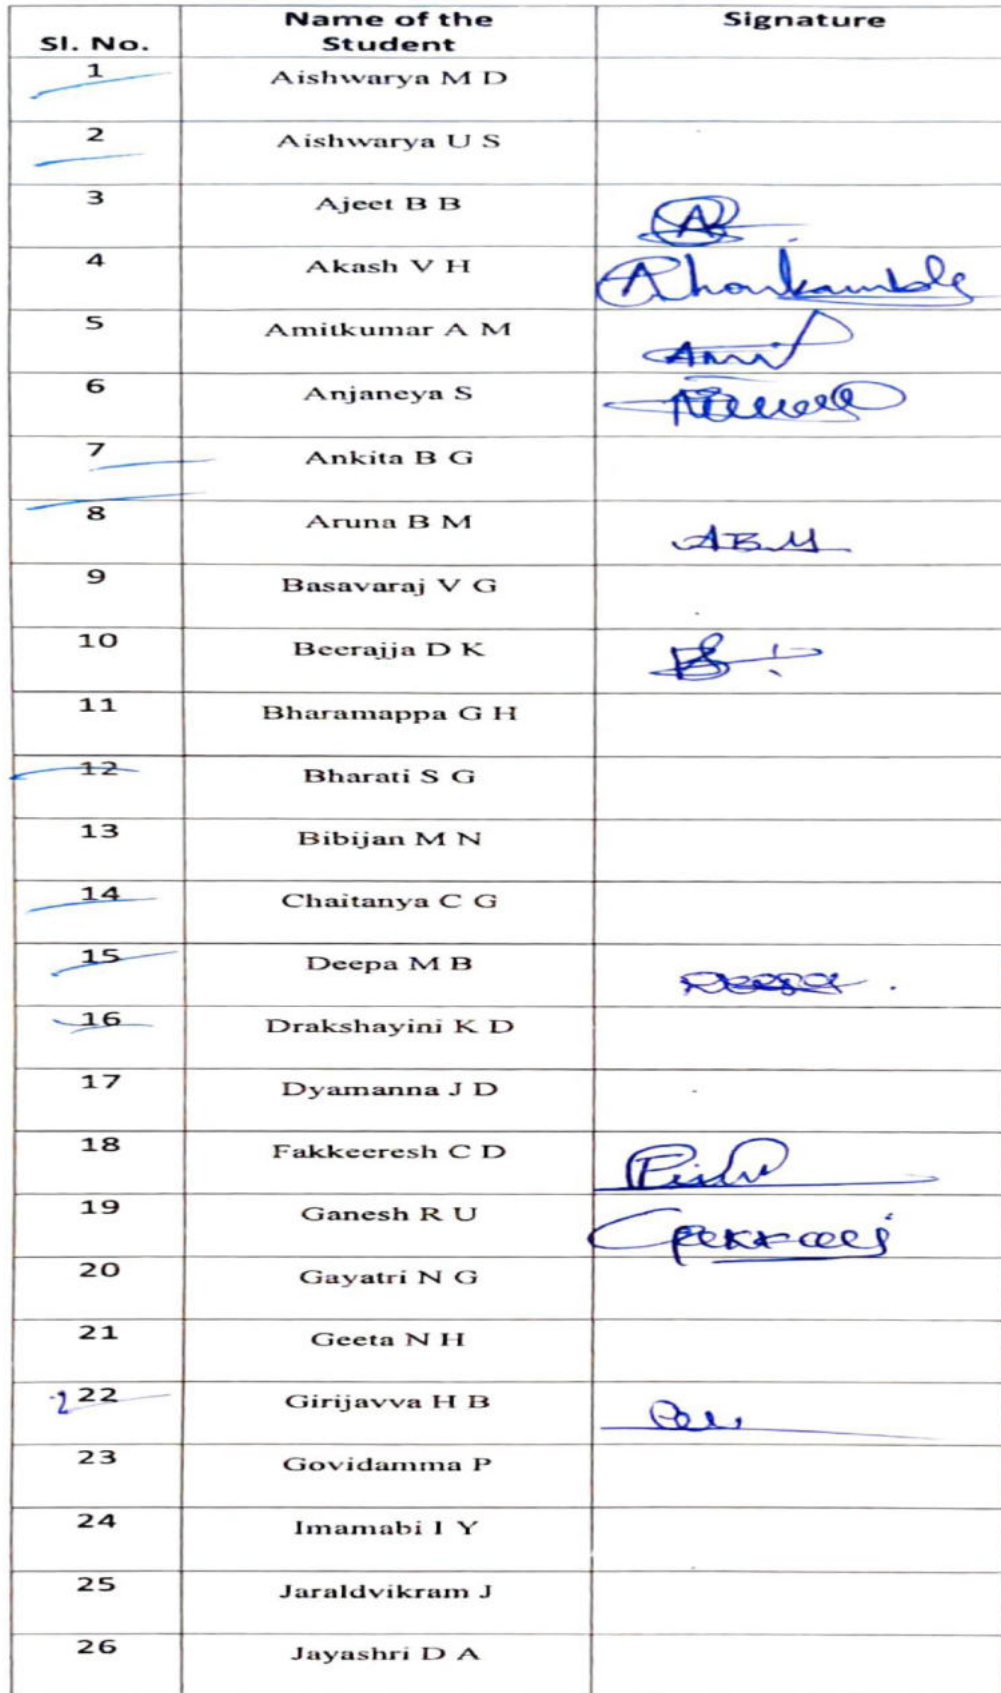 Sl. No. Name of the Student Signature
1 Aishwarya M D
2 Aishwarya U S
3 Ajeet B B
4 Akash V H
5 Amitkumar A M Amit
6 Anjaneya S
7 Ankita B G
8 Aruna B M ABM
9 Basavaraj V G
10 Beerajja D K
11 Bharamappa G H
12 Bharati S G
13 Bibijan M N
14 Chaitanya C G
15 Deepa M B Deepa
16 Drakshayini K D
17 Dyamanna J D
18 Fakkeeresh C D
19 Ganesh R U
20 Gayatri N G
21 Geeta N H
22 Girijavva H B
23 Govidamma P
24 Imamabi I Y
25 Jaraldvikram J
26 Jayashri D A